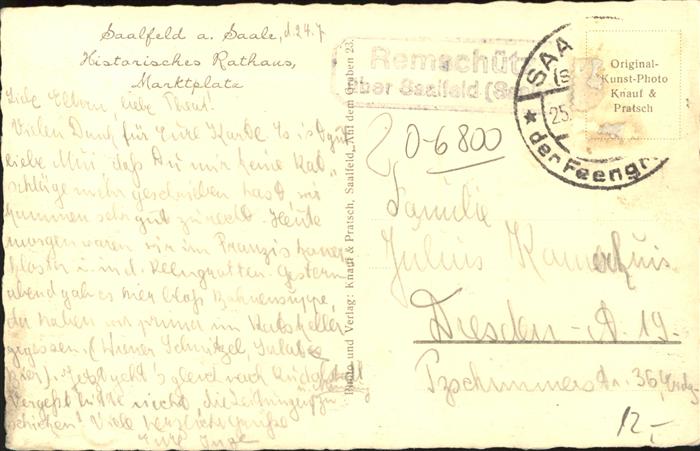 Saalfeld a. Saale, d. 24. 7
Historisches Rathaus,
Marktplatz
Liebe Eltern, liebe Theat!
Vielen Dank für Eure Karte. Es ist gut
liebe Mui, daß Du mir keine Rat-
schläge mehr geschrieben hast, wir
kommen sehr gut zurecht. Heute
morgen waren wir im Franziskaner
kloster u. in d. Feengrotten. Gestern
abend gab es hier bloß Bohnensuppe,
da haben wir prima im Ratskeller
gegessen. (Wiener Schnitzel, Salat
Bier). Jetzt geht's gleich nach Rudolstadt
Vergeßt bitte nicht die Zeitungen zu
schicken! Viele herzliche Grüße
Eure Inge
Photo und Verlag: Knauf & Pratsch, Saalfeld, Auf dem Graben 23.
Remschütz
über Saalfeld (Saale)
SAA
25.
* der Feengr
Original-
Kunst-Photo
Knauf &
Pratsch
0-6800
Familie
Julius
Dresden-A. 19.
36,
12,-